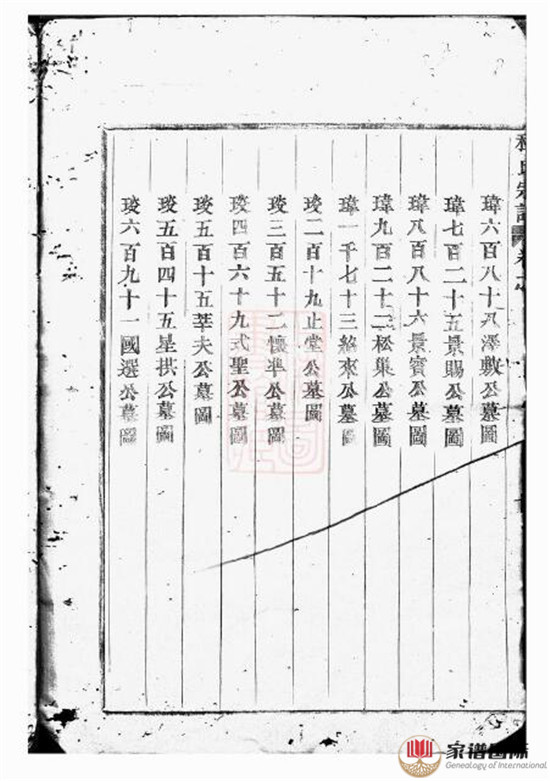 氏宗譜
瑋六百八十八澤敷公墓圖
瑋七百二十五景賜公墓圖
瑋八百八十六景賓公墓圖
瑋九百二十二松巢公墓圖
瑋一千七十三紹來公墓圖
琰二百十九止堂公墓圖
琰三百五十二懷準公墓圖
琰四百六十九式聖公墓圖
琰五百十五莘夫公墓圖
琰五百四十五星拱公墓圖
琰六百九十一國選公墓圖
家谱国际
Genealogy of International